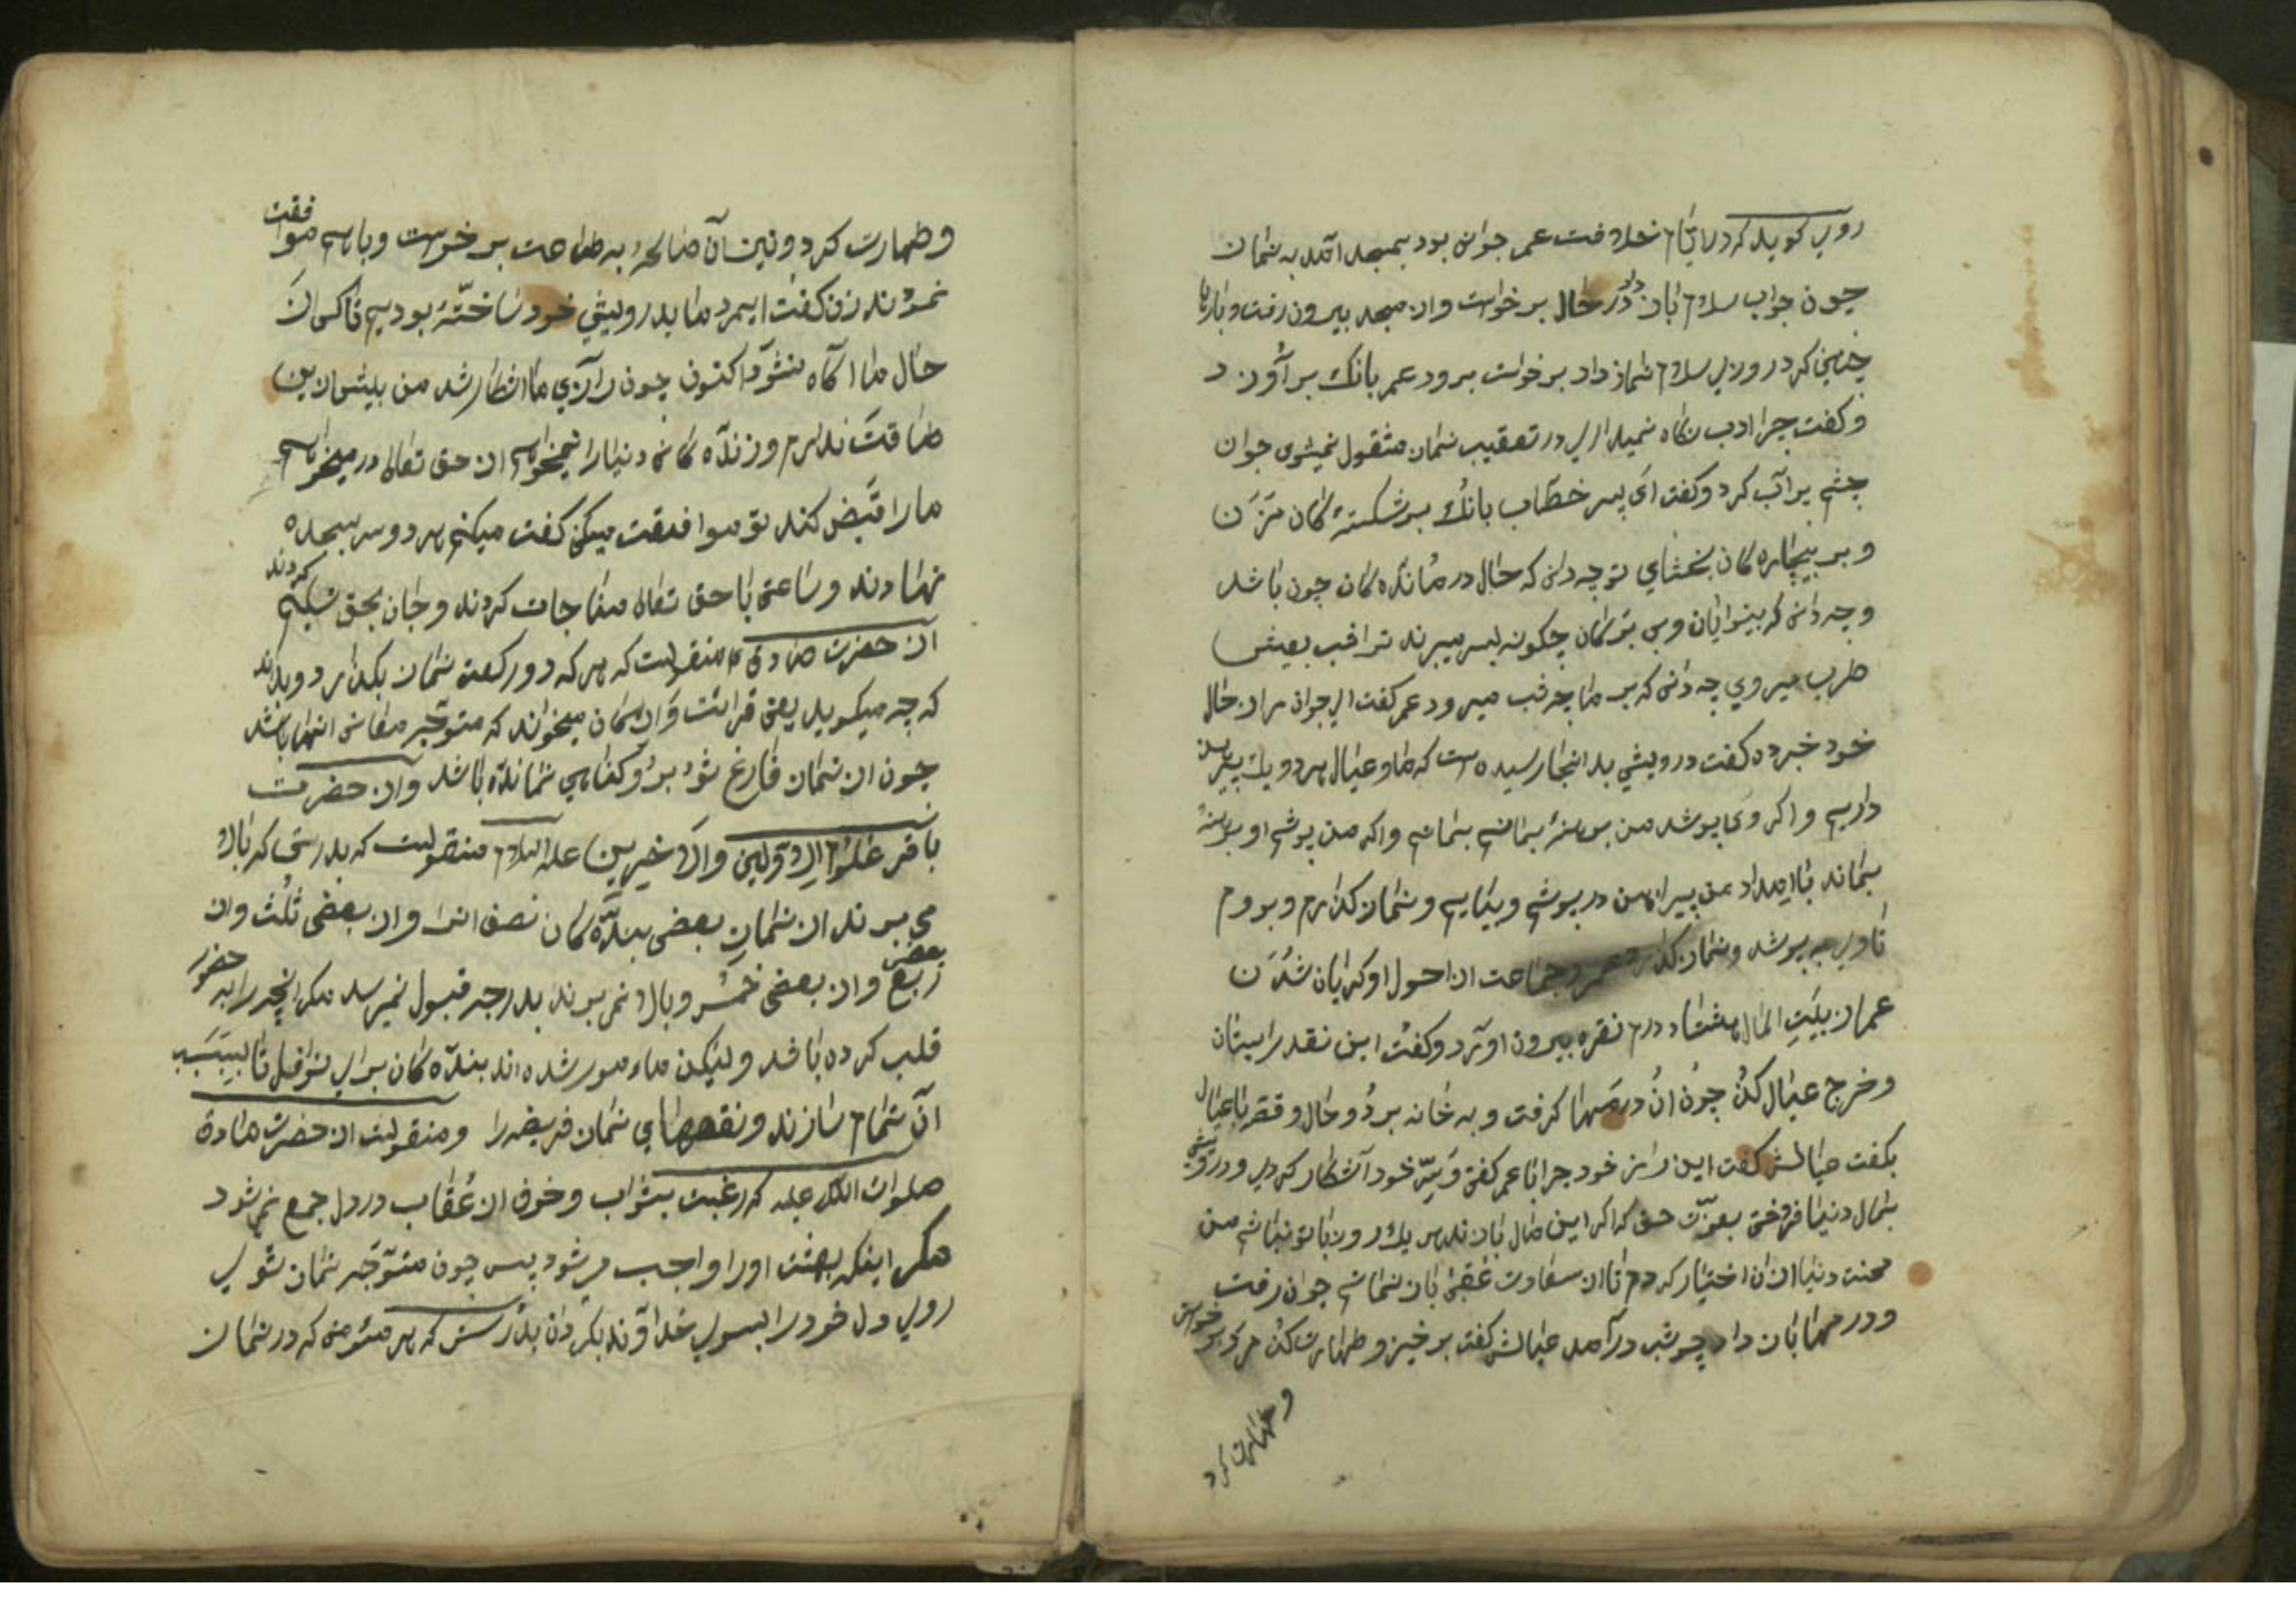 روی کوید که در ایام خلافت عمر جوانی بود بمسجد آمد به نماز
چون جواب سلام باز داد در حال برخواست و از مسجد بیرون رفت و بارها
چنین کرد روزی سلام نماز داد برخواست برود عمر بانک برآورد
و کفت چرا ادب نکاه نمیداری در تعقیب نماز مشغول نمیشوی جوان
چشم پر آب کرد و کفت ای پسر خطاب بانک بر شکسته کان مزن
و بر بیچاره کان بخشای تو چه دانی که حال درمانده کان چون باشد
و چه دانی که بینوایان و بی برکان چکونه بسر میبرند تو اقب بعیش
طرب میروی چه دانی که بر ما چه قب میرود عمر کفت ای جوان مرا از حال
خود خبر ده کفت درویشی بد انجا رسیده است که ما و عیال هر دو یک پیرهن
داریم و اکر وی پوشد من برهنهٔ بمانم و اکر من پوشم او برهنهٔ
بماند بامداد من پیراهن در پوشم و بیایم و نماز کذارم و بروم
تا وی به پوشد و نماز کذارد عمر و جماعت از احول او کریان شدن
عمر از بیت المال هشتاد درم نقره بیرون اورد و کفت این نقد را بستان
و خرج عیال کن چون ان درمها کرفت و به خانه برد و حال و قصه باعیال
بکفت عیالش کفت این راز خود چرا با عمر کفتی و سرّ خود آشکار کردی و درویشی
بمال دنیا فروختی بعزّت حق که اکر این مال باز ندهی یک روز با تو نباشم من
محنت دنیا از ان اختیار کردم تا از سعادت عقبی باز نمانم جوان رفت
و درمها باز داد چو شب درآمد عیالش کفت برخیز و طهارت کن مرد برخواست
و طهارت کرد
و طهارت کرد و نیز آن صالحهٔ به طاعت برخواست و باهم موافقت
نمودند زن کفت ایمرد ما بدرویشی خود ساخته بودیم تا کسی از
حال ما اکاه نشود اکنون چون راز ما اشکار شد من بیش از این
طاقت ندارم و زنده کانی دنیا را نمیخواهم از حق تعالی در میخواهم
ما را قبض کند تو موافقت میکنی کفت میکنم هر دو سر بسجده
نهادند و ساعتی با حق تعالی مناجات کردند و جان بحق تسلیم کردند
از حضرت صادق ع منقولست که هر که دو رکعت نماز بکذارد و بداند
که چه میکوید یعنی قرائت و اذکار میخواند که متوجه معانی انها باشد
چون از نماز فارغ شود برو کناهی نمانده باشد و از حضرت
باقر علوم الاولین والاخرین علیه السلام منقولست که بدرستی که بالا
می برند از نماز بعضی بنده کان نصف انرا و از بعضی ثلث و از
بعضی ربع و از بعضی خمس و بالا نمی برند بدرجه قبول نمیرسد مکر انچه را به حضور
قلب کرده باشد و لیکن مامور شده اند بنده کان برای نوافل تا بسبب
آن تمام سازند و نقصهای نماز فریضه را و منقولست از حضرت صادق
صلوات الله علیه که رغبت بثواب و خوف از عقاب در دل جمع نمیشود
مکر اینکه بهشت او را واجب میشود پس چون متوجه نماز شوی
روی دل خود را بسوی خداوند بکردان بدرستی که هر مؤمنی که در نماز